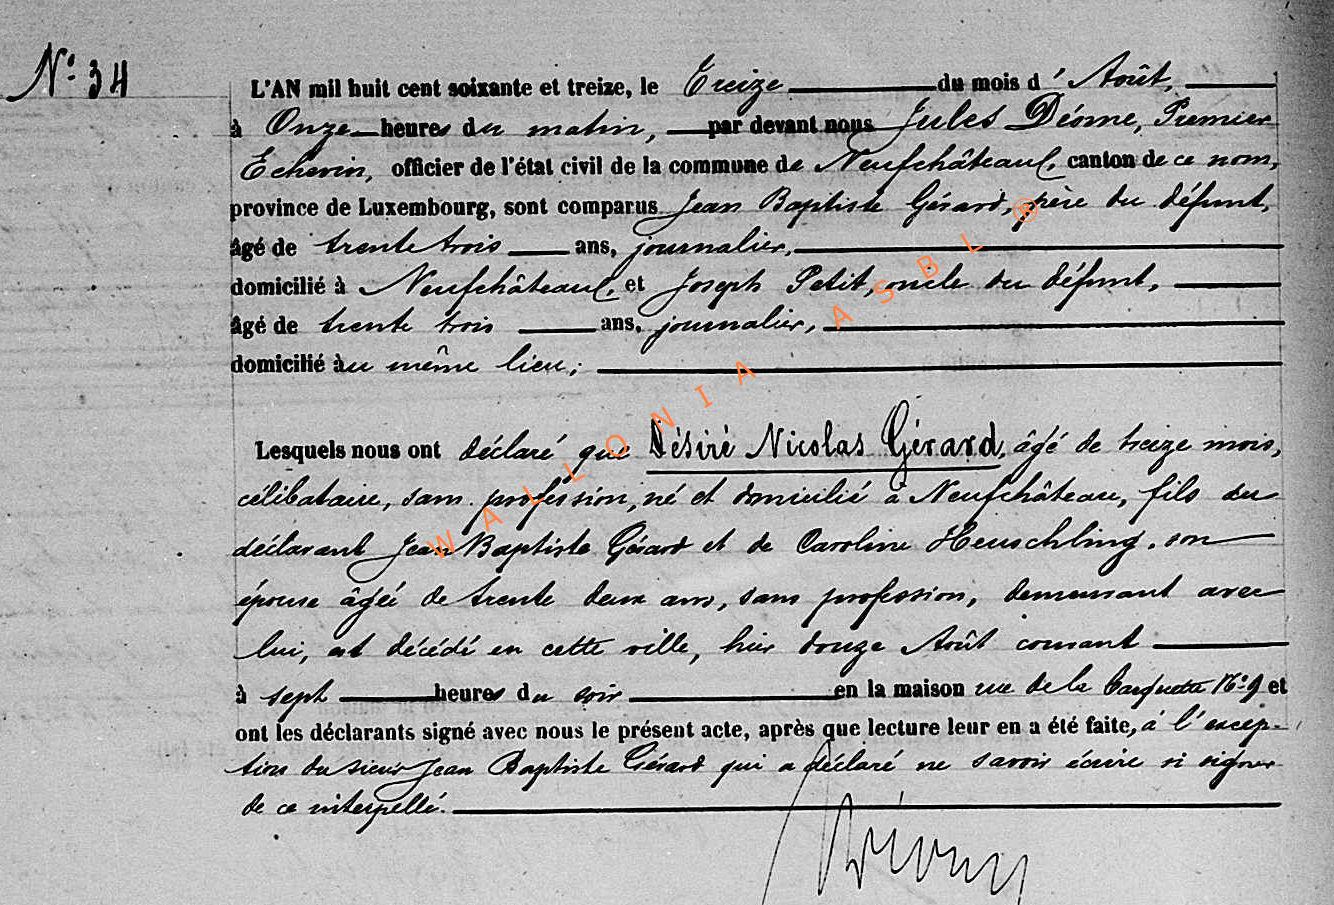 N° 34
L'AN mil huit cent soixante et treize, le Treize du mois d' Août,
à Onze heures du matin, par devant nous Jules Déome, Premier
Echevin, officier de l'état civil de la commune de Neufchâteau, canton de ce nom,
province de Luxembourg, sont comparus Jean Baptiste Gérard, père du défunt,
âgé de trente trois ans, journalier,
domicilié à Neufchâteau, et Joseph Petit, oncle du défunt,
âgé de trente trois ans, journalier,
domicilié àu même lieu;
Lesquels nous ont déclaré que Désiré Nicolas Gérard, âgé de treize mois,
célibataire, sans profession, né et domicilié à Neufchâteau, fils du
déclarant Jean Baptiste Gérard et de Caroline Heuschling, son
épouse âgée de trente deux ans, sans profession, demeurant avec
lui, est décédé en cette ville, hier douze Août courant
à sept heures du soir en la maison rue de la N° 9 et
ont les déclarants signé avec nous le présent acte, après que lecture leur en a été faite, à l'excep-
tion du sieur Jean Baptiste Gérard qui a déclaré ne savoir écrire ni signer
de ce interpellé.
WALLONIA ASBL ®